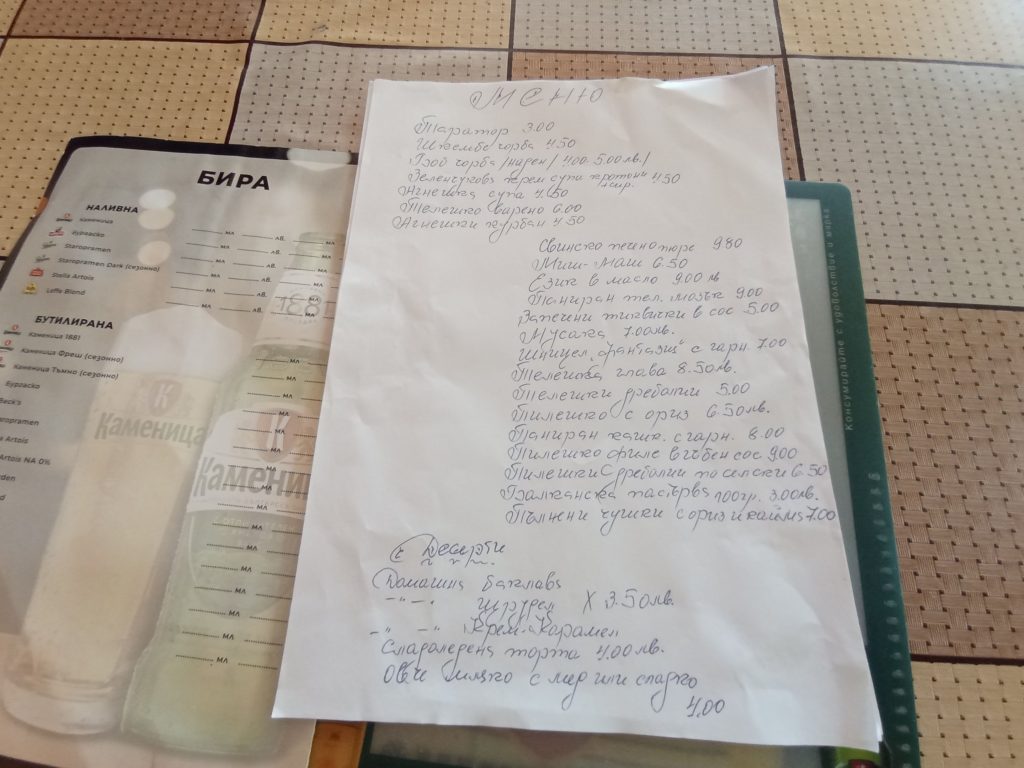 МЕНЮ
Таратор 3.00
Шкембе чорба 4.50
Боб чорба /наден/ 4.00-5.00лв./
Зеленчукова крем супа крутони и сир. 4.50
Агнешка супа 4.50
Телешко варено 6.00
Агнешки курбан 4.50
Свинско печено пюре 9.80
Миш-Маш 6.50
Език в масло 9.00 лв
Паниран тел. мозък 9.00
Запечени тиквички в сос 5.00
Мусака 7.00лв.
Шницел „Фантазия" с гарн. 7.00
Телешка глава 8.50лв.
Телешки дреболии 5.00
Пилешко с ориз 6.50лв.
Паниран кашк. с гарн. 8.00
Пилешко филе в гъбен сос 9.00
Пилешки дреболии по селски 6.50
Балканска пастърва 100гр. 3.00лв.
Пълнени чушки с ориз и кайма 7.00
Десерти
Домашна баклава
-"- Щрудел X 3.50лв.
-"- -"- Крем-Карамел
Сладоледена торта 4.00лв.
Овче мляко с мед или сладко
4.00
БИРА
НАЛИВНА
Каменица
Бургаско
Staropramen
Staropramen Dark (сезонно)
Stella Artois
Leffe Blond
БУТИЛИРАНА
Каменица 1881
Каменица Фреш (сезонно)
Каменица Тъмно (сезонно)
Бургаско
Beck's
Staropramen
Artois
Artois NA 0%
МЛ ЛВ.
МЛ ЛВ.
МЛ ЛВ.
МЛ ЛВ.
МЛ
МЛ
МЛ
МЛ
МЛ
МЛ
МЛ
МЛ
МЛ
МЛ
МЛ
МЛ
Каменица
Камени
Консумирайте с удоволствие и мярка